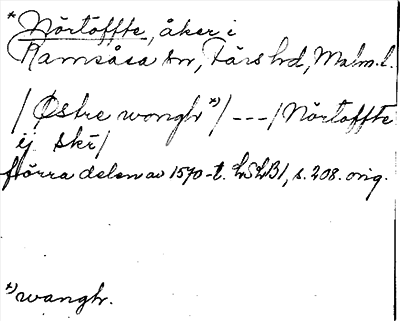 * Nörtoffte, åker i
Ramsåsa sn, Färs hd, Malm.l.
/ Østre wongh *) / --- / Nörtoffte
ej skr /
större delen av 1570-t. LSLB1, s. 208. orig.
*) wangh.